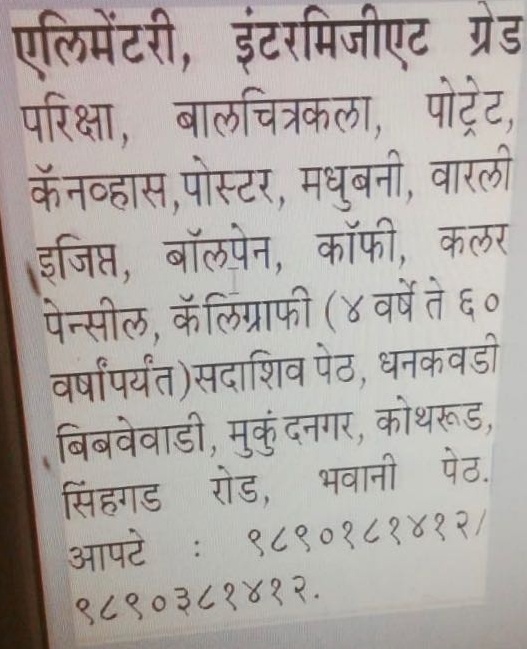 एलिमेंटरी, इंटरमिजीएट ग्रेड
परिक्षा, बालचित्रकला, पोट्रेट,
कॅनव्हास,पोस्टर, मधुबनी, वारली
इजिप्त, बॉलपेन, कॉफी, कलर
पेन्सील, कॅलिग्राफी (४ वर्षे ते ६०
वर्षांपर्यंत)सदाशिव पेठ, धनकवडी
बिबवेवाडी, मुकुंदनगर, कोथरूड,
सिंहगड रोड, भवानी पेठ.
आपटे : ९८९०१८१४१२/
९८९०३८१४१२.